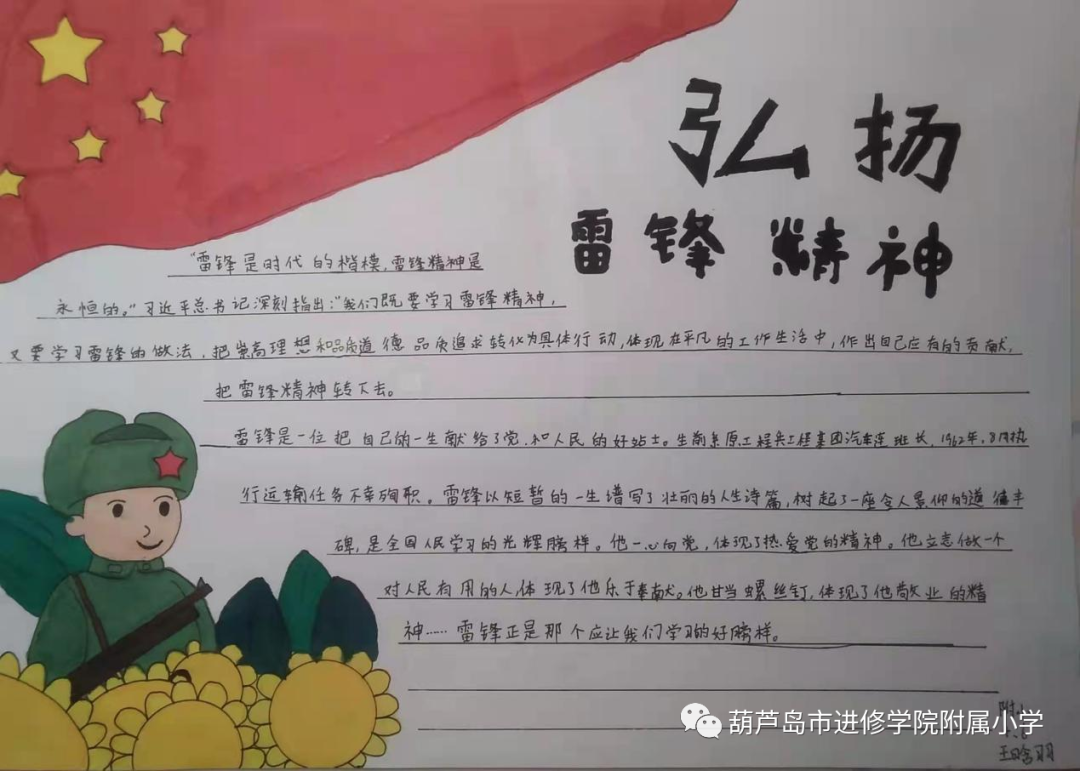 弘扬
雷锋精神
“雷锋是时代的楷模,雷锋精神是
永恒的。”习近平总书记深刻指出:“我们既要学习雷锋精神,
又要学习雷锋的做法,把崇高理想和品质道德品质追求转化为具体行动,体现在平凡的工作生活中,作出自己应有的贡献,
把雷锋精神转下去。
雷锋是一位把自己的一生献给了党,和人民的好站士。生前系原工程兵工程某团汽车连班长,1962年,8月执
行运输任务不幸殉职。雷锋以短暂的一生谱写了壮丽的人生诗篇,树起了一座令人景仰的道德丰
碑,是全国人民学习的光辉膀样。他一心向党,体现了热爱党的精神。他立志做一个
对人民有用的人体现了他乐于奉献。他甘当螺丝钉,体现了他敬业的精
神……雷锋正是那个应让我们学习的好膀样。
附小
王晗羽
葫芦岛市进修学院附属小学